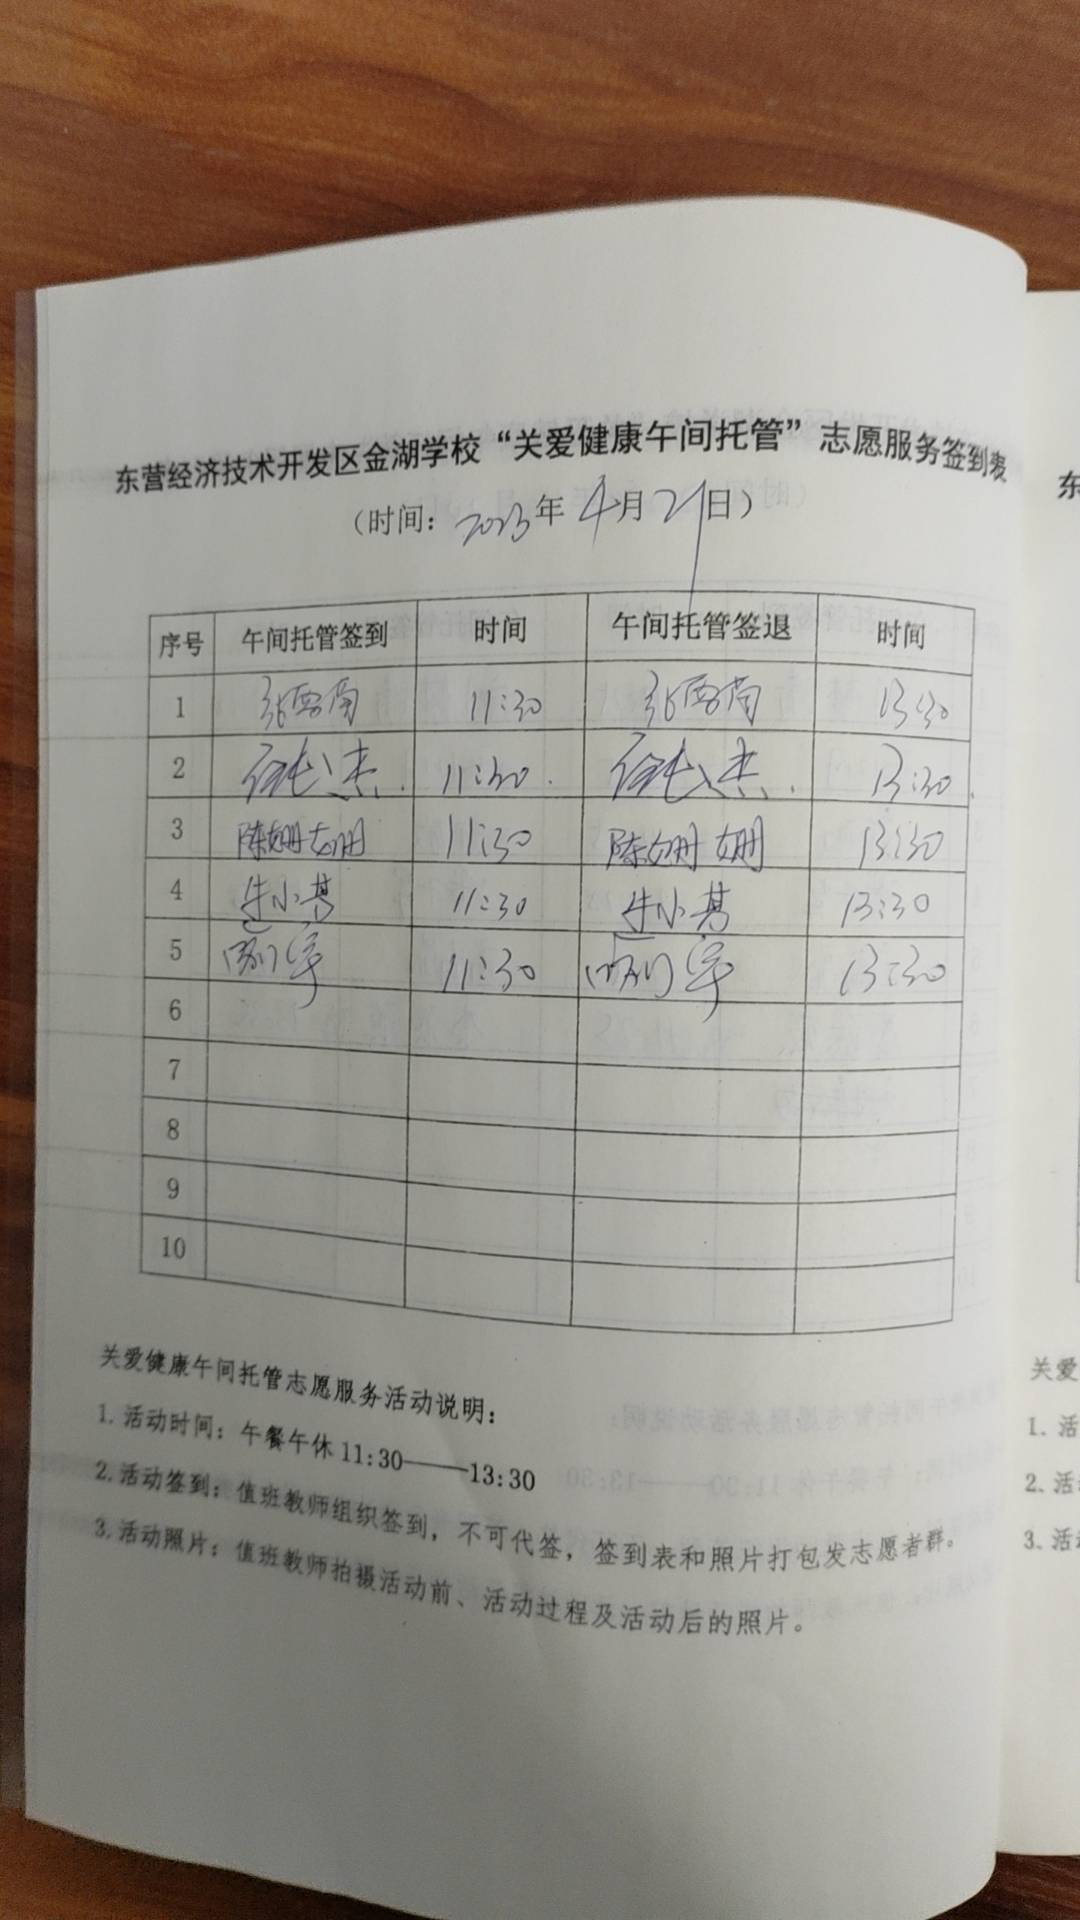 东营经济技术开发区金湖学校“关爱健康午间托管”志愿服务签到表
（时间：2023年4月21日）
序号 午间托管签到 时间 午间托管签退 时间
1 11:30 13:30
2 11:30 13:30
3 陈姗姗 11:30 陈姗姗 13:30
4 牛小甚 11:30 牛小甚 13:30
5 11:30 13:30
6
7
8
9
10
关爱健康午间托管志愿服务活动说明：
1.活动时间：午餐午休11:30——13:30
2.活动签到：值班教师组织签到，不可代签，签到表和照片打包发志愿者群。
3.活动照片：值班教师拍摄活动前、活动过程及活动后的照片。
东
关爱
1. 活
2. 活
3. 活